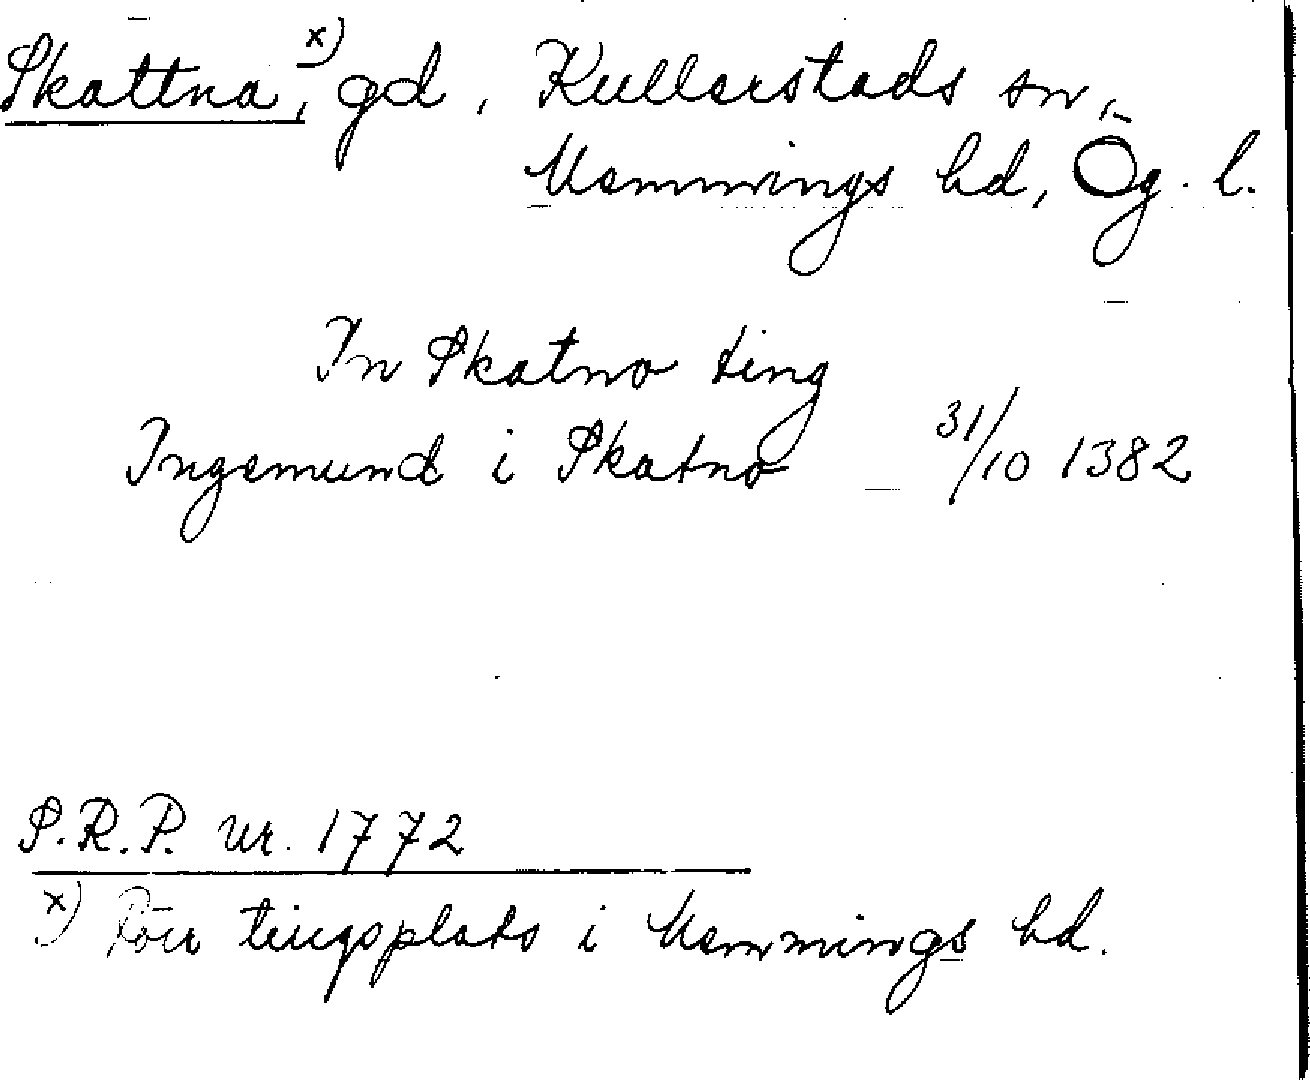 Skattna, x) gd, Kullerstads sn,
Memmings hd, Ög. l.
In Skatno ting
Ingemund i Skatno 31/10 1382
S.R.P. nr. 1772
x) Förr tingsplats i Memmings hd.